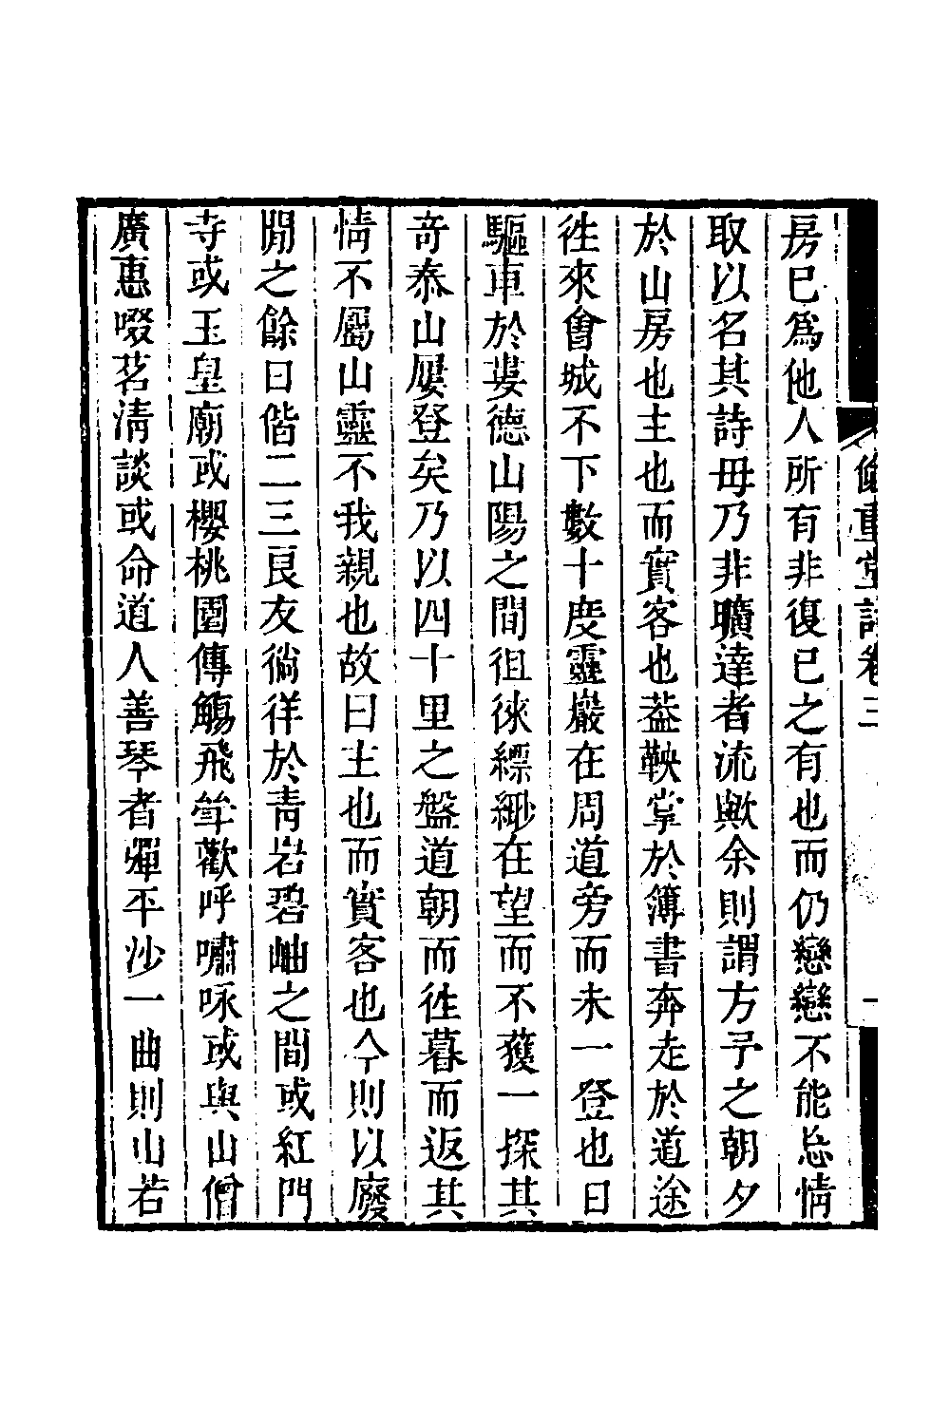 重堂詩卷三
一
房已爲他人所有非復已之有也而仍戀戀不能忘情
取以名其詩毋乃非曠達者流歟余則謂方予之朝夕
於山房也主也而賓客也葢鞅掌於簿書奔走於道途
徃來會城不下數十度靈巖在周道旁而未一登也日
驅車於婁德山陽之間徂徠縹緲在望而不獲一探其
奇泰山屢登矣乃以四十里之盤道朝而徃暮而返其
情不屬山靈不我親也故曰主也而賓客也今則以廢
閒之餘日偕二三良友徜徉於靑岩碧岫之間或紅門
寺或玉皇廟或櫻桃園傳觴飛斝歡呼嘯咏或與山僧
廣惠啜茗淸談或命道人善琴者彈平沙一曲則山若